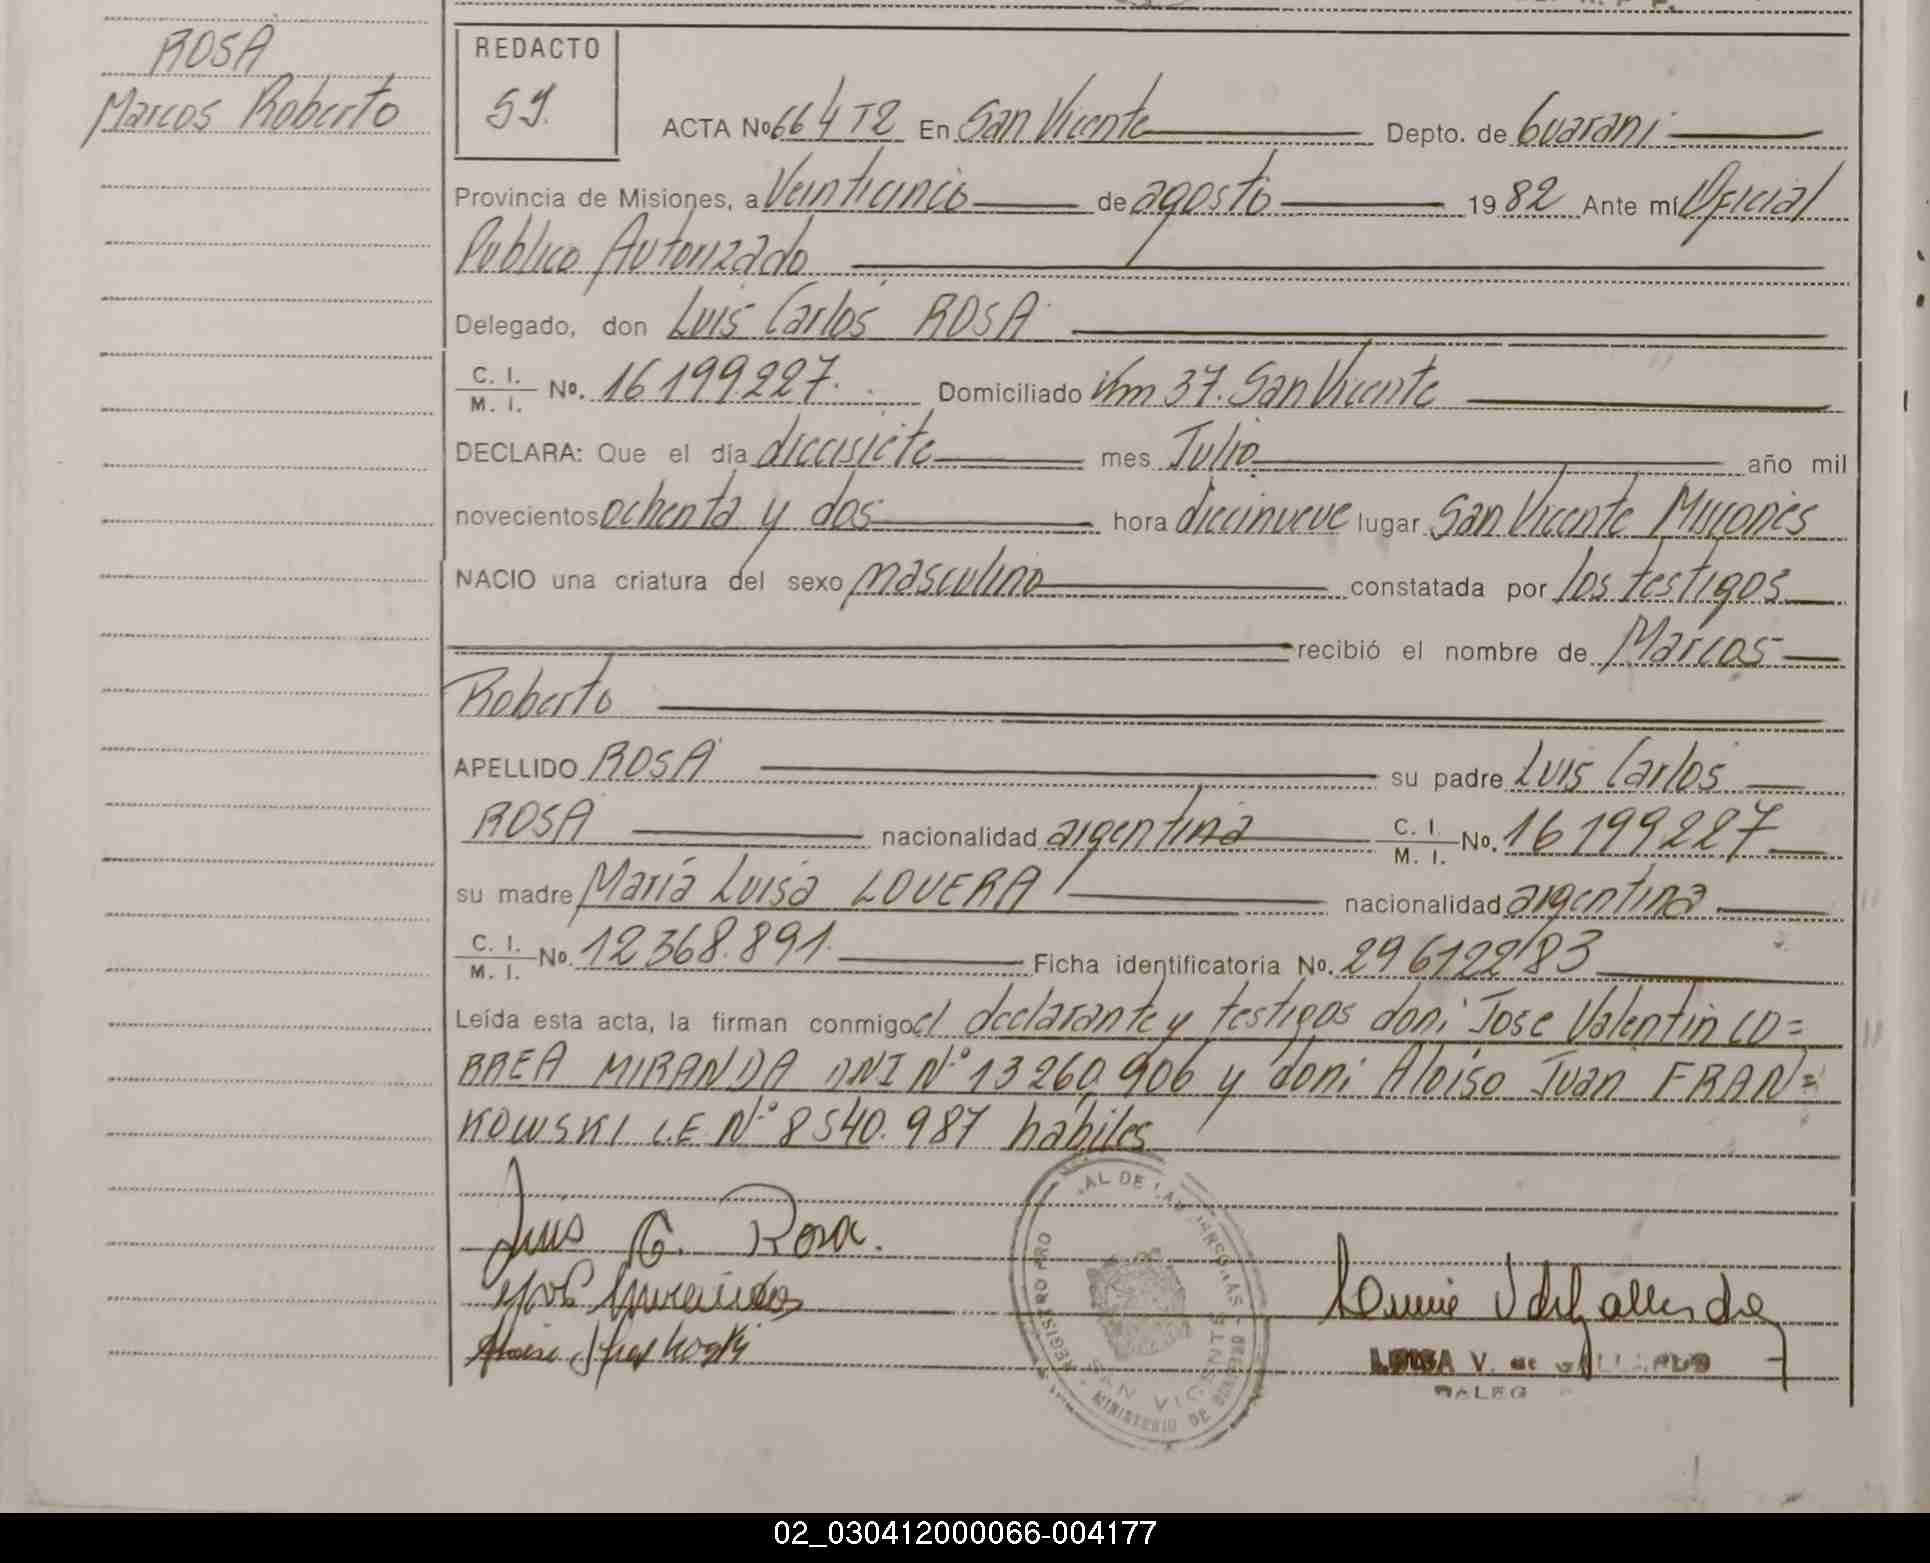 ROSA
Marcos Roberto
REDACTO
59.
ACTA No 664 T2 En San Vicente Depto. de Guarani
Provincia de Misiones, a Veinticinco de agosto 1982 Ante mí Oficial
Publico Autorizado
Delegado, don Luis Carlos ROSA
C. I. / M. I. No. 16199.227. Domiciliado Km 37. San Vicente
DECLARA: Que el día diecisiete mes Julio año mil
novecientos ochenta y dos hora diecinueve lugar San Vicente Misiones
NACIO una criatura del sexo masculino constatada por los testigos
recibió el nombre de Marcos
Roberto
APELLIDO ROSA su padre Luis Carlos
ROSA nacionalidad argentina C. I. / M. I. No. 16199227
su madre María Luisa LOVERA nacionalidad argentina
C. I. / M. I. No. 12368.891. Ficha identificatoria No. 29612283
Leída esta acta, la firman conmigo el declarante y testigos don: Jose Valentin CO=
RREA MIRANDA DNI N° 13260.906 y don: Aloiso Juan FRAN=
KOWSKI L.E. N° 8540.987 habiles
Luis C. Rosa.
REGISTRO PRO AL DE LAS PERSONAS
SAN VICENTE
MINISTERIO DE GOBIERNO
LUISA V. de GALLARDO
02_030412000066-004177